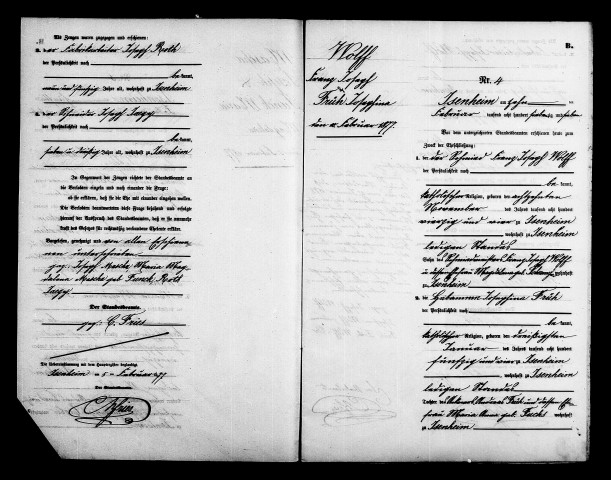 Als Zeugen waren zugezogen und erschienen:
3. der Fabrikarbeiter Joseph Roth
der Persönlichkeit nach
be kannt,
neun und fünfzig Jahre alt, wohnhaft zu Isenheim
4. der Schneider Joseph
der Persönlichkeit nach
be kannt,
sieben und dreißig Jahre alt, wohnhaft zu Isenheim
In Gegenwart der Zeugen richtete der Standesbeamte an
die Verlobten einzeln und nach einander die Frage:
ob sie erklären, daß sie die Ehe mit einander eingehen wollen.
Die Verlobten beantworteten diese Frage bejahend und erfolgte
hierauf der Ausspruch des Standesbeamten, daß er sie nunmehr
kraft des Gesetzes für rechtmäßig verbundene Eheleute erkläre.
Vorgelesen, genehmigt und von allen Erschienenen
unterschrieben
gez: Joseph Maria Mag
dalena geb. Roth
Der Standesbeamte.
gez: C. Fries
Die Uebereinstimmung mit dem Hauptregister beglaubigt
Isenheim am 5 ten Februar 1877
Der Standesbeamte.
C. Fries
Wolff
Franz Joseph
&
Früh Josephina
den 10. Februar 1877.
B.
Nr. 4
Isenheim am zehn ten
Februar tausend acht hundert sieben zig und sieben
Vor dem unterzeichneten Standesbeamten erschienen heute zum
Zweck der Eheschließung:
1. der Schmied Franz Joseph Wolff
der Persönlichkeit nach
be kannt,
katholischer Religion, geboren den achtzehnten
November des Jahres tausend acht hundert
vierzig und vier zu Isenheim
wohnhaft zu Isenheim
ledigen Standes
Sohn des Schmiedmeister Franz Joseph Wolff
u. dessen Ehefrau Magdalena geb. wohnhaft
zu Isenheim
2. die Hebamme Josephina Früh
der Persönlichkeit nach
be kannt,
katholischer Religion, geboren den dreißigsten
Januar des Jahres tausend acht hundert
fünfzig und vier zu Isenheim
wohnhaft zu Isenheim
ledigen Standes
Tochter des Andreas Früh und dessen Ehe
frau Maria Anna geb. Fuchs wohnhaft
zu Isenheim